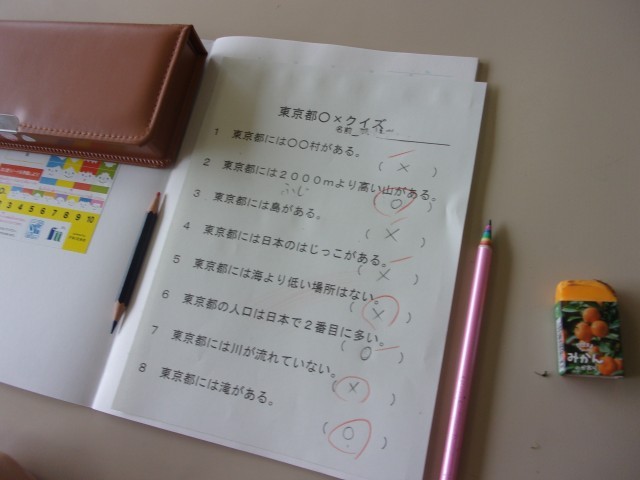 東京都〇×クイズ
名前
1 東京都には〇〇村がある。
( × )
2 東京都には2000mより高い山がある。
( 〇 )
ふじ
3 東京都には島がある。
( × )
4 東京都には日本のはじっこがある。
( × )
5 東京都には海より低い場所はない。
( × )
6 東京都の人口は日本で2番目に多い。
( 〇 )
7 東京都には川が流れていない。
( × )
8 東京都には滝がある。
( 〇 )
みかん
3 4 5 6 7 8 9 10